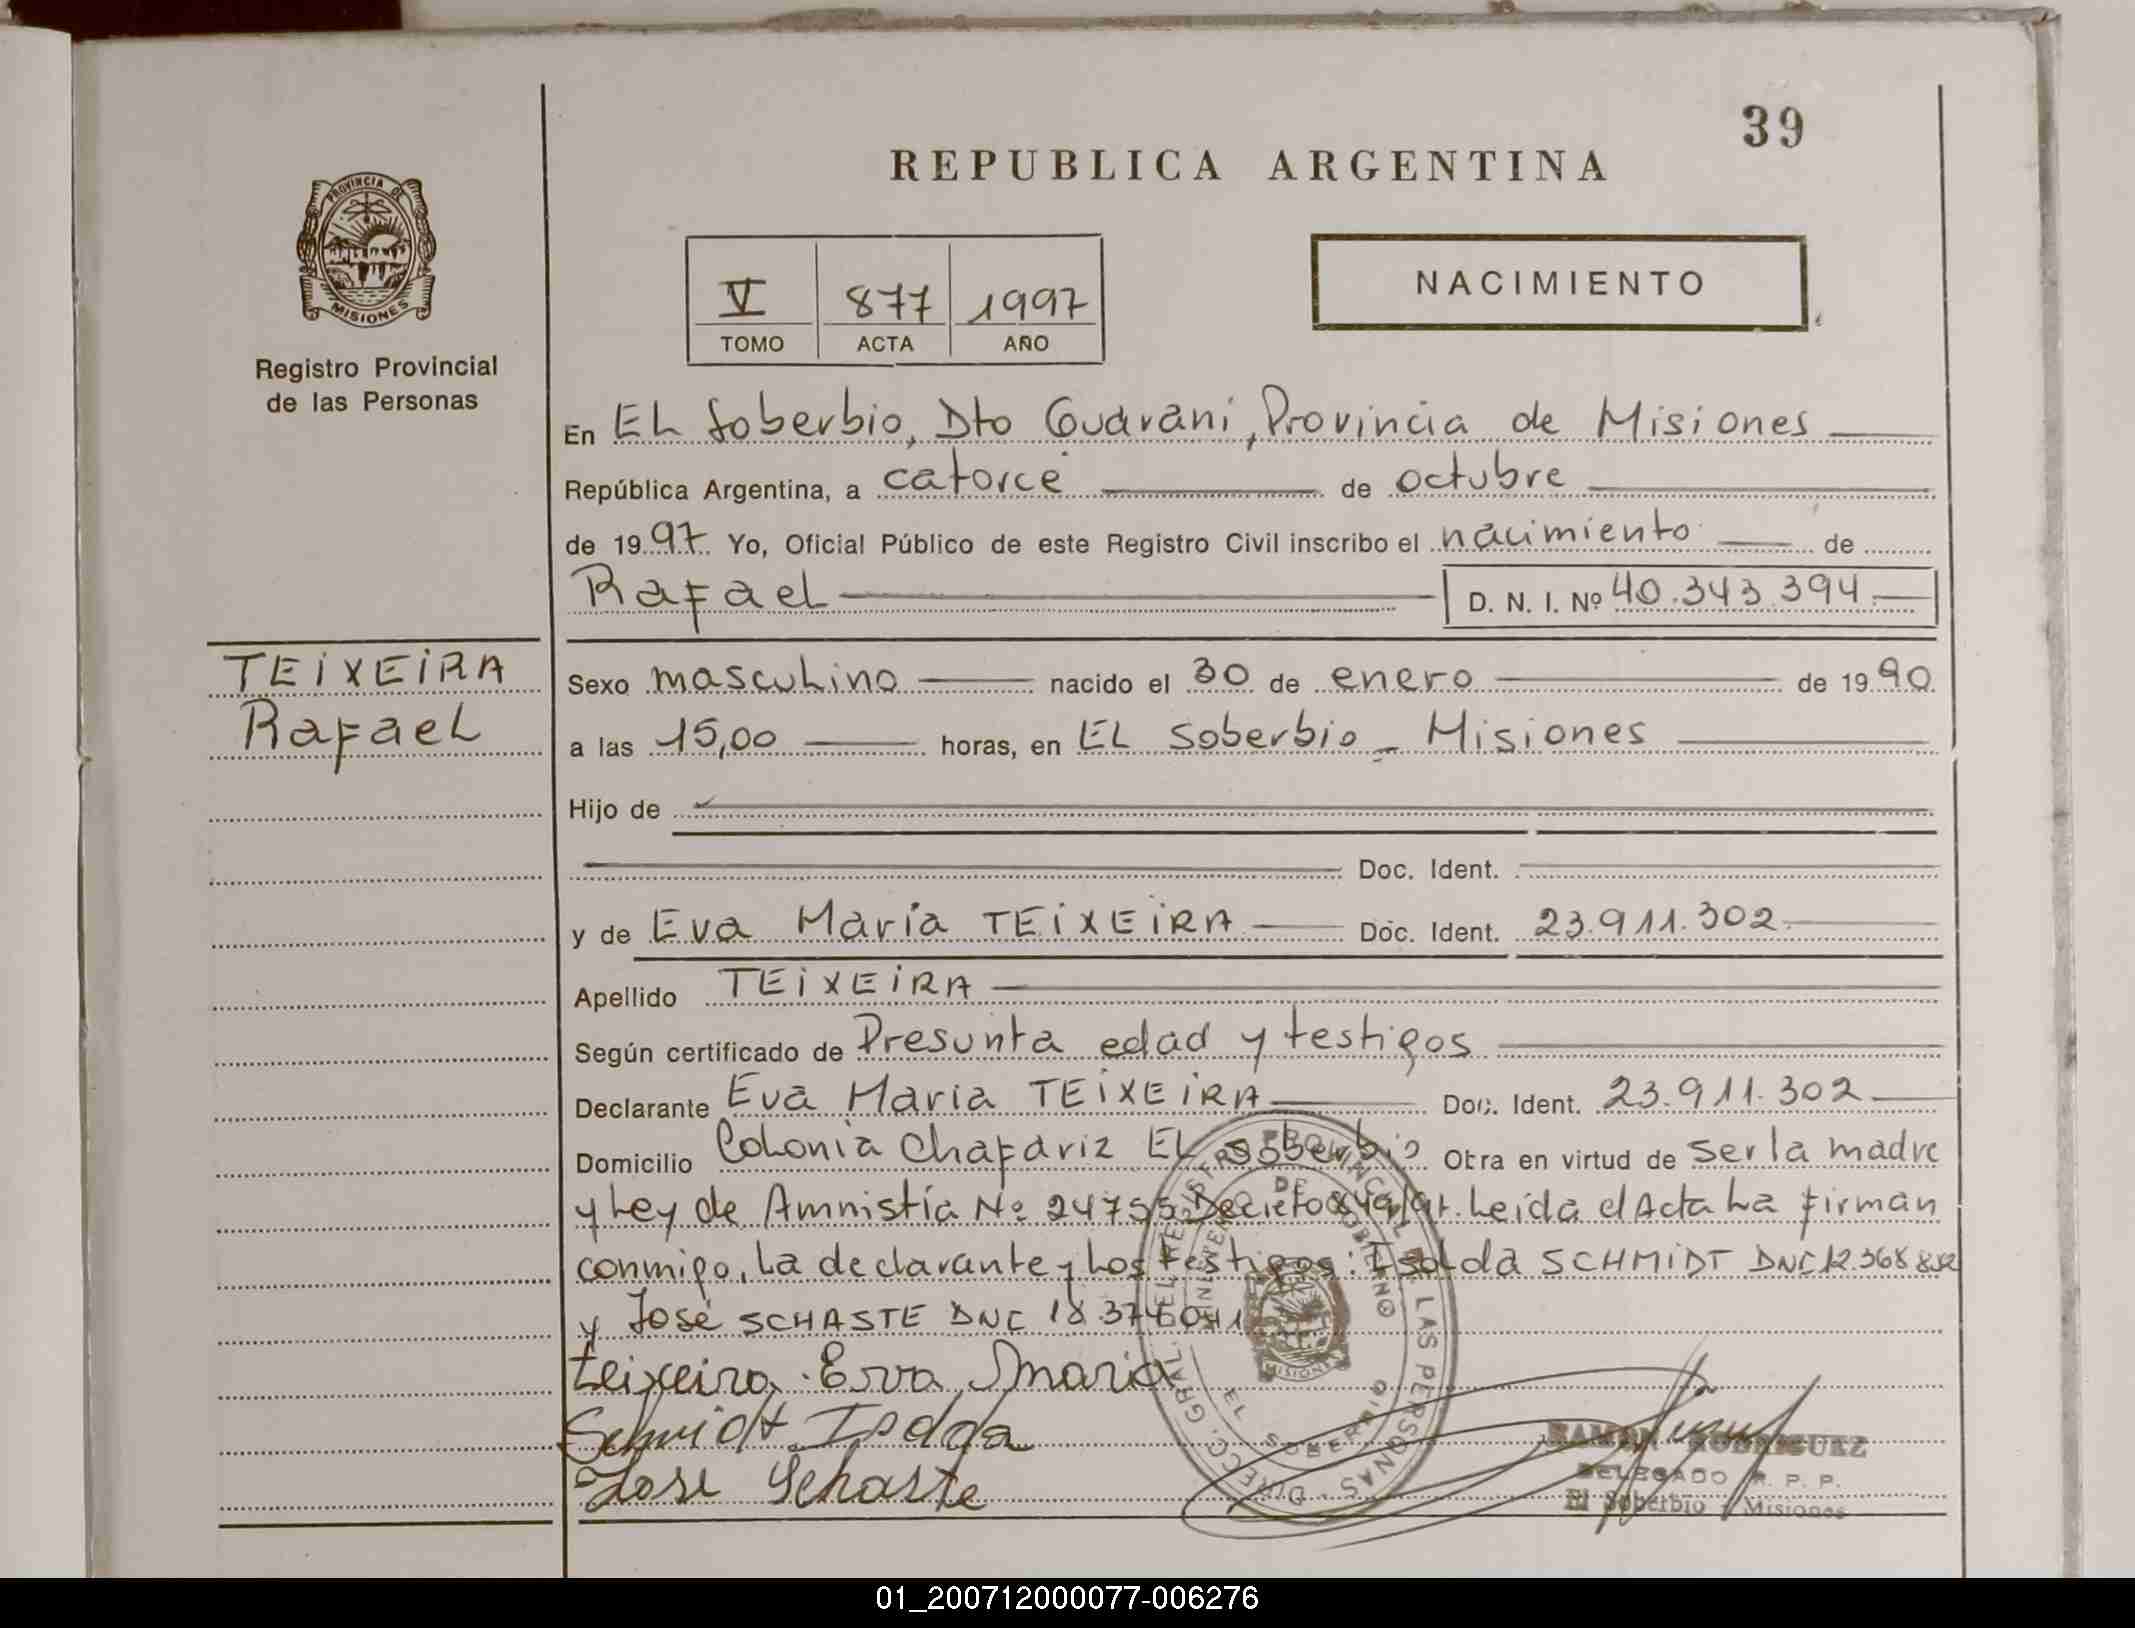 39
REPUBLICA ARGENTINA
PROVINCIA DE
MISIONES
Registro Provincial
de las Personas
V 877 1997
TOMO ACTA AÑO
NACIMIENTO
En EL Soberbio, Dto Guarani, Provincia de Misiones
República Argentina, a catorce de octubre
de 1997 Yo, Oficial Público de este Registro Civil inscribo el nacimiento de
Rafael D. N. I. Nº 40.343.394
TEIXEIRA
Rafael
Sexo masculino nacido el 30 de enero de 1990
a las 15,00 horas, en EL Soberbio - Misiones
Hijo de
Doc. Ident.
y de Eva María TEIXEIRA Doc. Ident. 23.911.302
Apellido TEIXEIRA
Según certificado de Presunta edad y testigos
Declarante Eva Maria TEIXEIRA Doc. Ident. 23.911.302
Domicilio Colonia Chafariz EL Soberbio Obra en virtud de ser la madre
y Ley de Amnistía Nº 24755 Decreto Leída el Acta La firman
conmigo, La declarante y Los testigos: Isolda SCHMIDT DNC 12.368
y José SCHASTE DNC 18.37
Teixeira Eva Maria
Schmidt Isolda
José Schaste
DIRECC. GRAL. DEL REGISTRO PROVINCIAL DE LAS PERSONAS
MINISTERIO DE GOBIERNO
MISIONES
EL SOBERBIO
RAMON RODRIGUEZ
DELEGADO R. P. P.
El Soberbio - Misiones
01_200712000077-006276